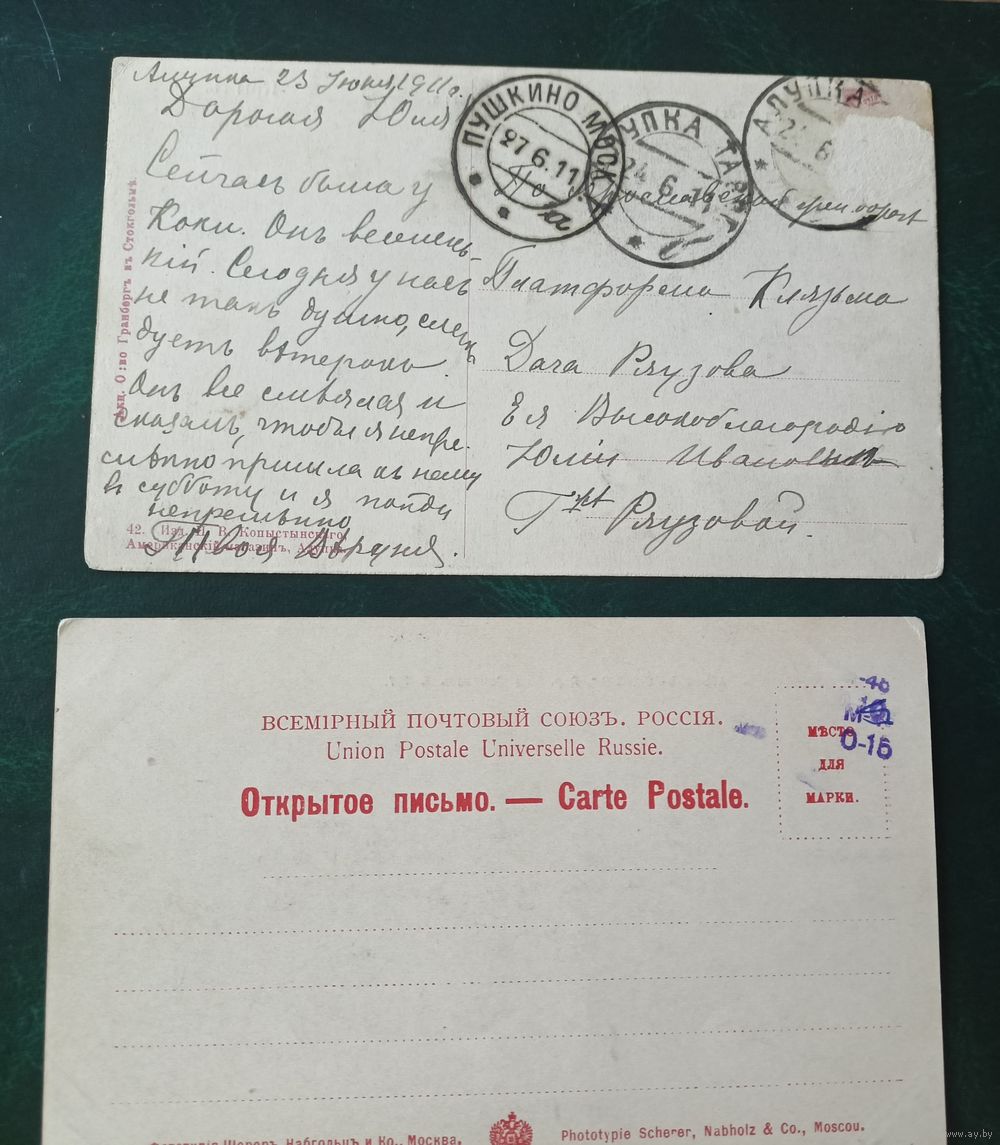 Алупка 23 Июня 1911г.
Дорогая Юля
Сейчасъ была у
Коки. Онъ веселень-
кій. Сегодня у насъ
не такъ душно, слегка
дуетъ вѣтерокъ.
Онъ все смѣялся и
сказалъ, чтобы я непре-
мѣнно пришла къ нему
въ субботу и я пойду
непремѣнно
Твоя Вѣруня.
Акц. О:во Гранбергъ въ Стокгольмѣ.
42. Изд. В. Копыстынскаго,
Американскій магазинъ, Алупка
ПУШКИНО МОСК.
27.6.11
УПКА ТАВР.
24 6 11
АЛУПКА
6
По Ярославской жел. дорог
Платформа Клязьма
Дача Ряузова
Ея Высокоблагородію
Юліи Ивановнѣ
Г-жѣ Ряузовой.
ВСЕМІРНЫЙ ПОЧТОВЫЙ СОЮЗЪ. РОССІЯ.
Union Postale Universelle Russie.
Открытое письмо. — Carte Postale.
МѢСТО
ДЛЯ
МАРКИ.
-46
0-15
Фототипія Шереръ, Набгольцъ и Ко., Москва.
Phototypie Scherer, Nabholz & Co., Moscou.
www.ay.by